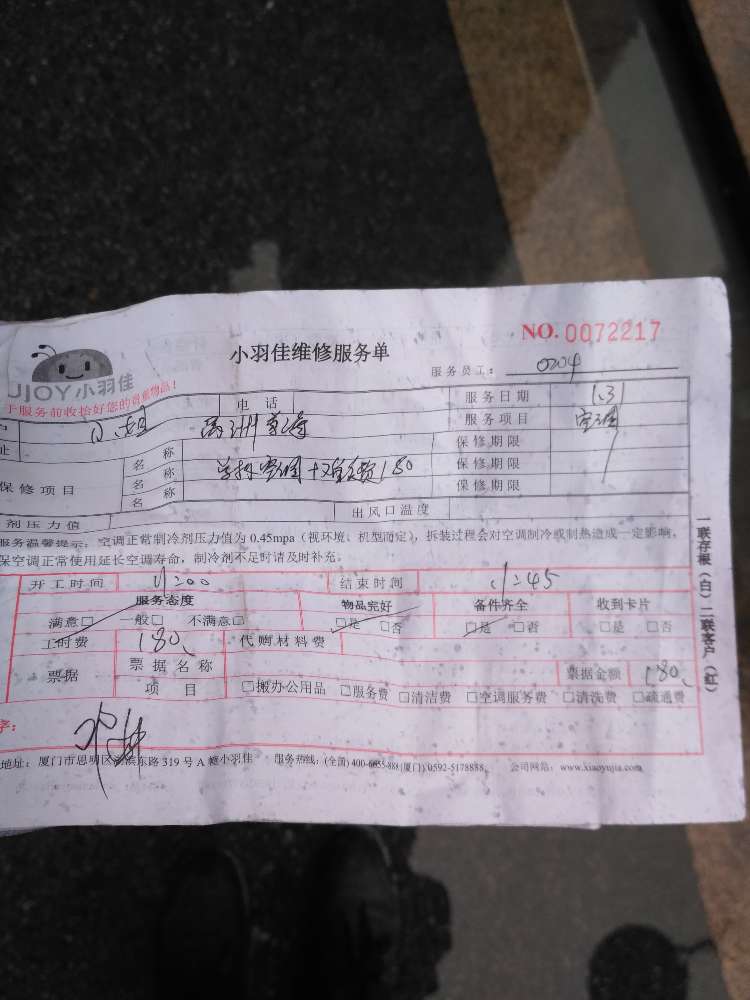 NO. 0072217
小羽佳维修服务单
JIOY小羽佳
服务员工: 0204
于服务前收拾好您的贵重物品!
电话
服务日期 1.31
服务项目 空调
址
保修项目
名称
保修期限
名称 180
保修期限
名称
保修期限
剂压力值
出风口温度
服务温馨提示: 空调正常制冷剂压力值为 0.45mpa (视环境、机型而定), 拆装过程会对空调制冷或制热造成一定影响,
保空调正常使用延长空调寿命, 制冷剂不足时请及时补充。
开工时间 11:00 结束时间 11:45
服务态度 物品完好 备件齐全 收到卡片
满意□ 一般□ 不满意□ □是 □否 □是 □否 □是 □否
工时费 180 代购材料费
票据
票据名称
票据金额 180
项目 □搬办公用品 □服务费 □清洁费 □空调服务费 □清洗费 □疏通费
字:
地址: 厦门市思明区湖滨东路 319 号 A 幢小羽佳 服务热线: (全国) 400-6655-888 (厦门) 0592-5178888 公司网站: www.xiaoyujia.com
一联存根(白) 二联客户(红)